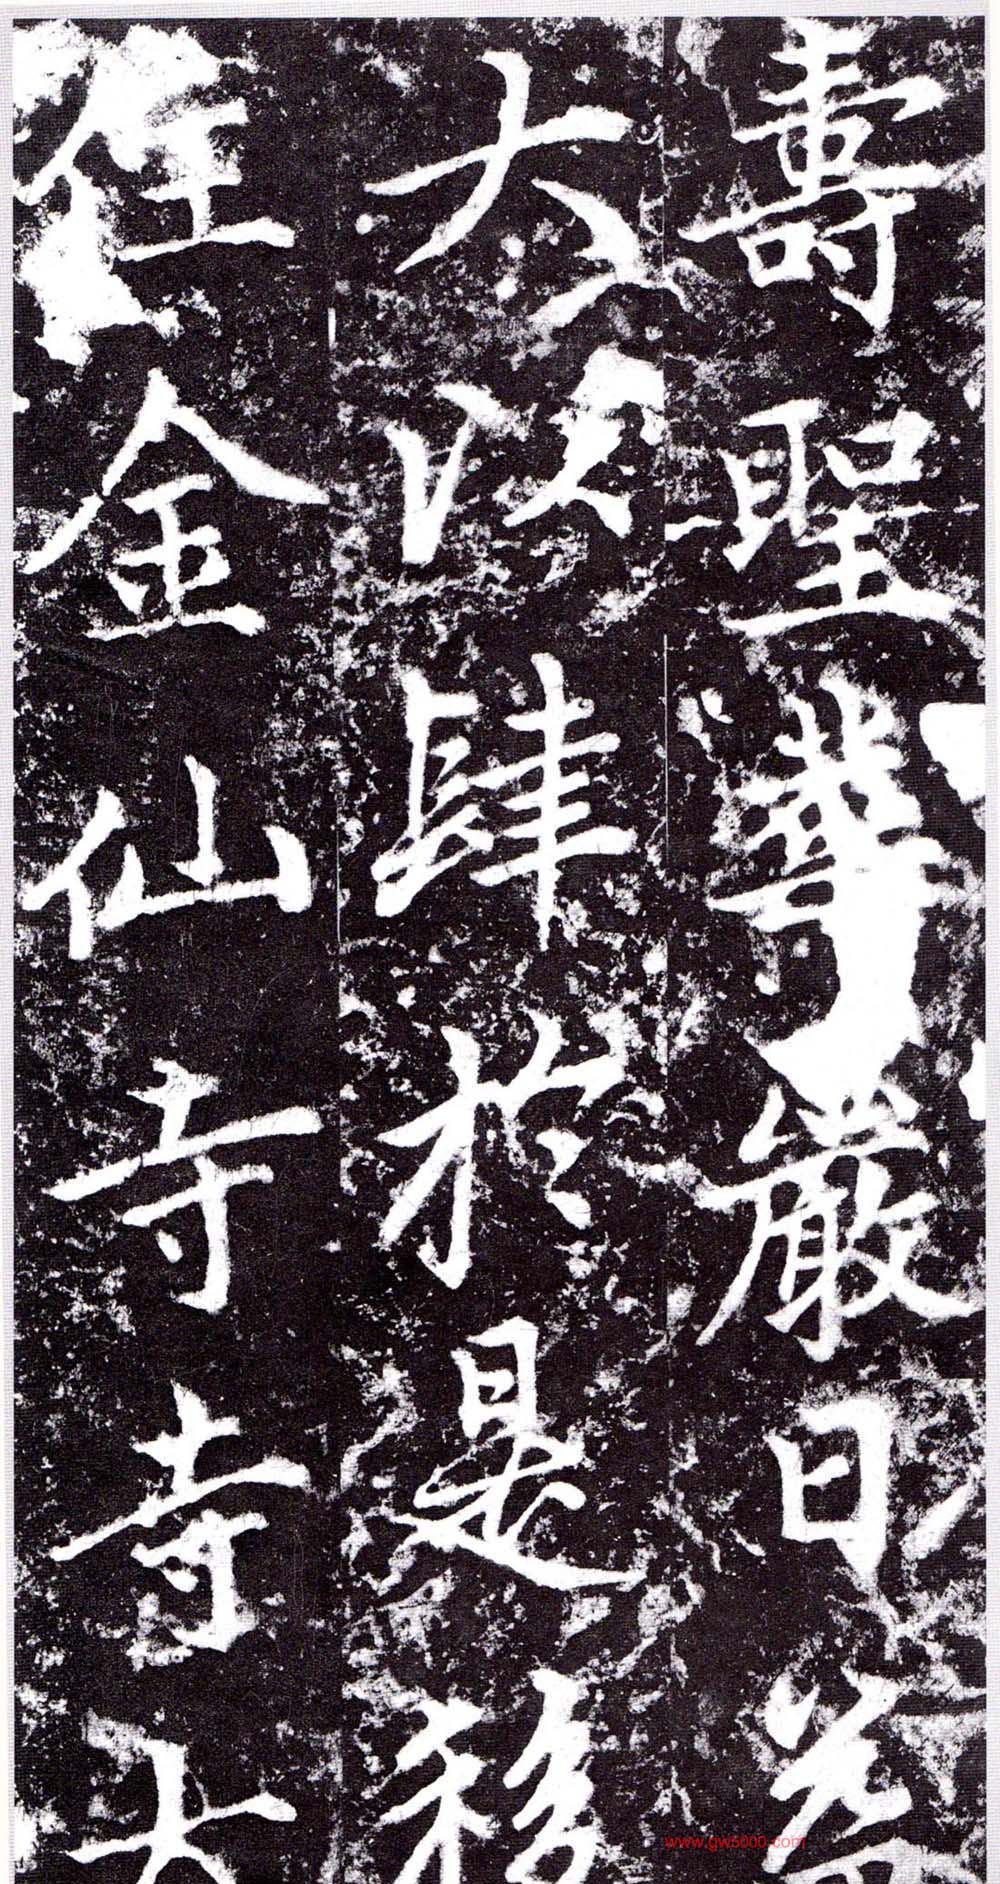 壽聖華嚴日益
大以肆於是移
住金仙寺寺大
www.gw5000.com